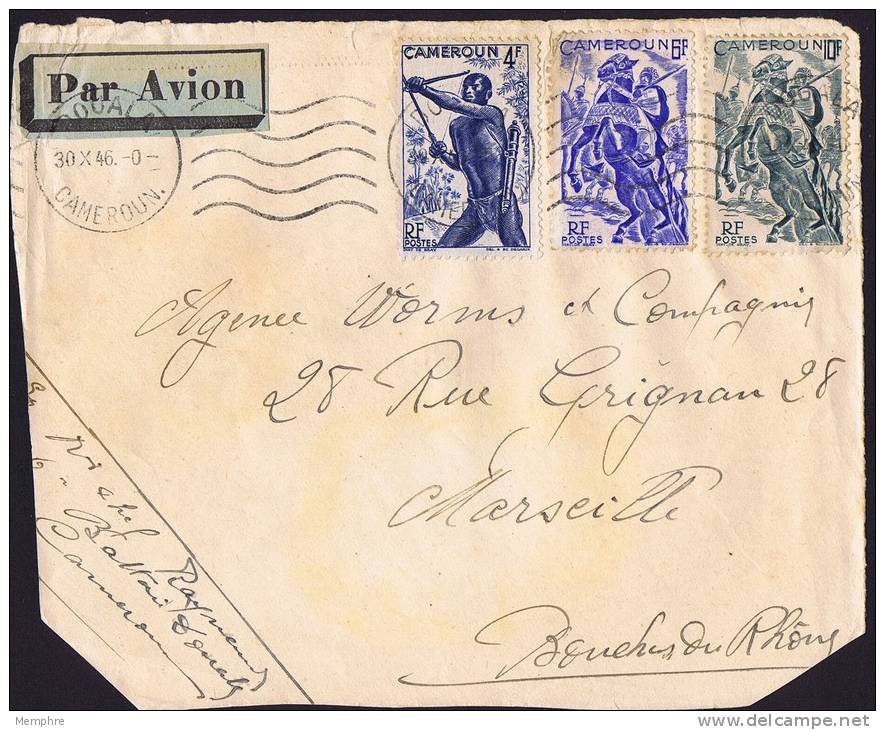 Par Avion
DOUALA
30 X 46.-0-
CAMEROUN.
CAMEROUN 4F
RF
POSTES
CAMEROUN 6F
RF
POSTES
CAMEROUN 10F
RF
POSTES
DOUALA
Agence Worms et Compagnie
28 Rue Grignan 28
Marseille
Bouches du Rhône
Raynaud
Douala
Cameroun
Memphre
www.delcampe.net